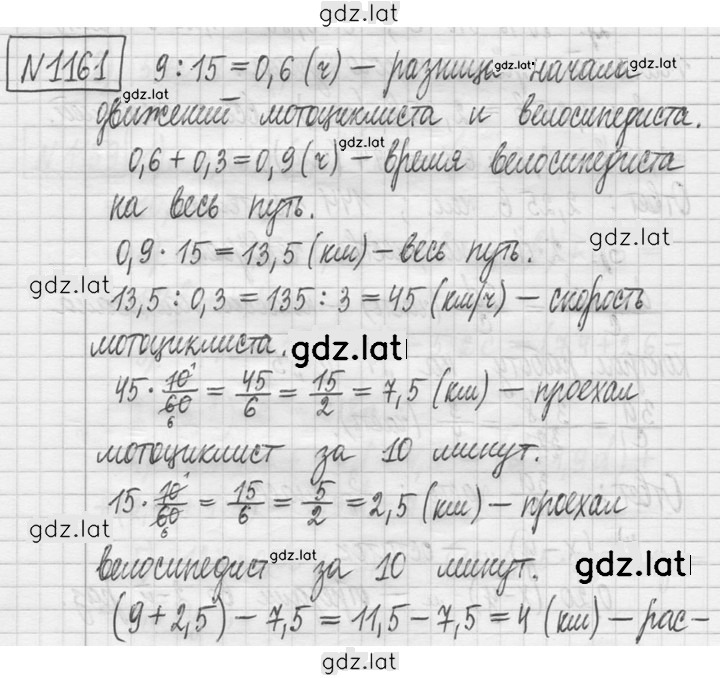 gdz.lat
N1161 9 : 15 = 0,6 (ч) – разница начала
gdz.lat gdz.lat
gdz.lat
движений мотоциклиста и велосипедиста.
gdz.lat
0,6 + 0,3 = 0,9 (ч) – время велосипедиста
на весь путь.
gdz.lat
0,9 · 15 = 13,5 (км) – весь путь.
gdz.lat
13,5 : 0,3 = 135 : 3 = 45 (км/ч) – скорость
мотоциклиста.
gdz.lat
45 · 10/60 = 45/6 = 15/2 = 7,5 (км) – проехал
1 6
мотоциклист за 10 минут.
15 · 10/60 = 15/6 = 5/2 = 2,5 (км) – проехал
1 6
gdz.lat
велосипедист за 10 минут.
gdz.lat gdz.lat
(9 + 2,5) – 7,5 = 11,5 – 7,5 = 4 (км) – рас-
gdz.lat